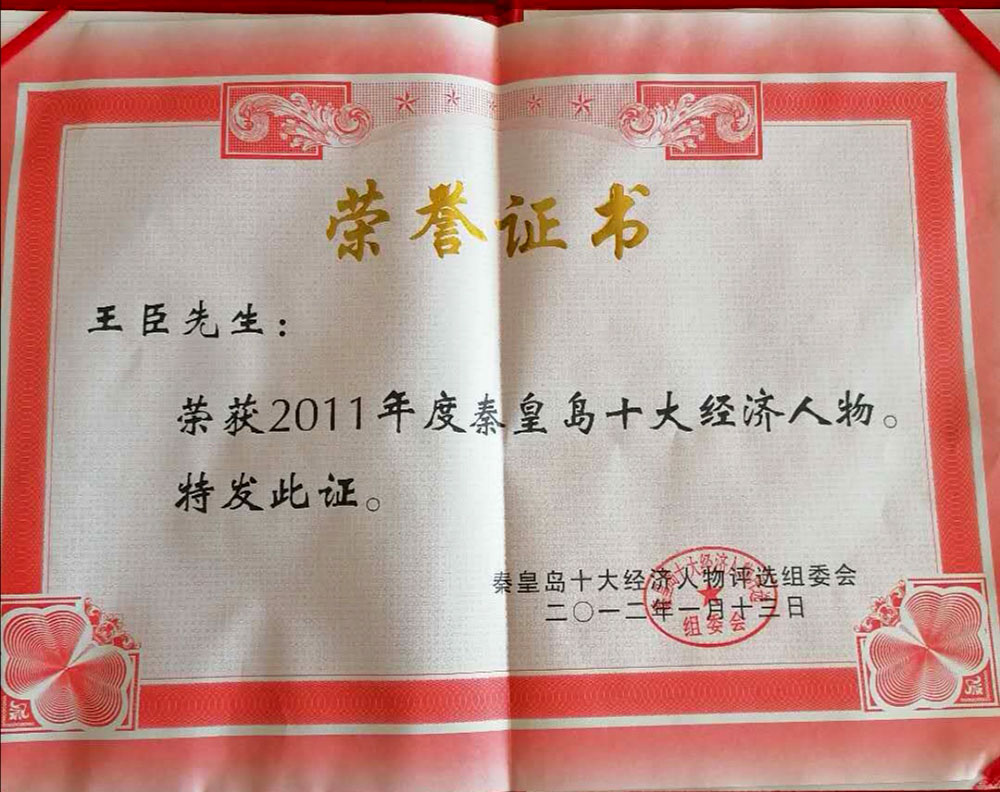 荣誉证书
王臣先生：
荣获2011年度秦皇岛十大经济人物。
特发此证。
秦皇岛十大经济人物评选组委会
二〇一二年一月十三日
组委会